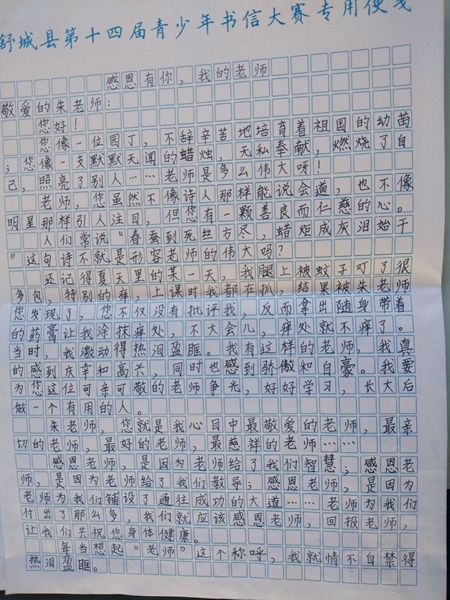 舒城县第十四届青少年书信大赛专用便笺
感恩有你，我的老师
敬爱的朱老师：
您好！
您像一位园丁，不辞辛苦地培育着祖国的幼苗
；您像一支默默无闻的蜡烛，无私奉献，燃烧了自
己，照亮了别人……老师是多么伟大呀！
老师，您虽然不像诗人那样能说会道，也不像
明星那样引人注目，但您有一颗善良而仁慈的心。
人们常说“春蚕到死丝方尽，蜡炬成灰泪始干
”这句诗不就是形容老师的伟大吗？
还记得夏天里的某一天，我腿上被蚊子叮了很
多包，特别的痒，上课时我都在抓，结果被朱老师
您发现了，您不仅没有批评我，反而拿出随身带着
的药膏让我涂抹痒处，不大会儿，痒处就不痒了。
当时，我激动得热泪盈眶。我有这样的老师，我真
的感到庆幸和高兴，同时也感到骄傲和自豪。我要
为您这位可亲可敬的老师争光，好好学习，长大后
做一个有用的人。
朱老师，您就是我心目中最敬爱的老师，最亲
切的老师，最好的老师，最慈祥的老师……
感恩老师，是因为老师给了我们智慧；感恩老
师，是因为老师给了我们教导；感恩老师，是因为
老师为我们铺设了通往成功的大道……老师为我们
付出了那么多，我们就应该感恩老师，回报老师，
让我们共祝您身体健康。
每当想起“老师”这个称呼，我就情不自禁得
热泪盈眶。